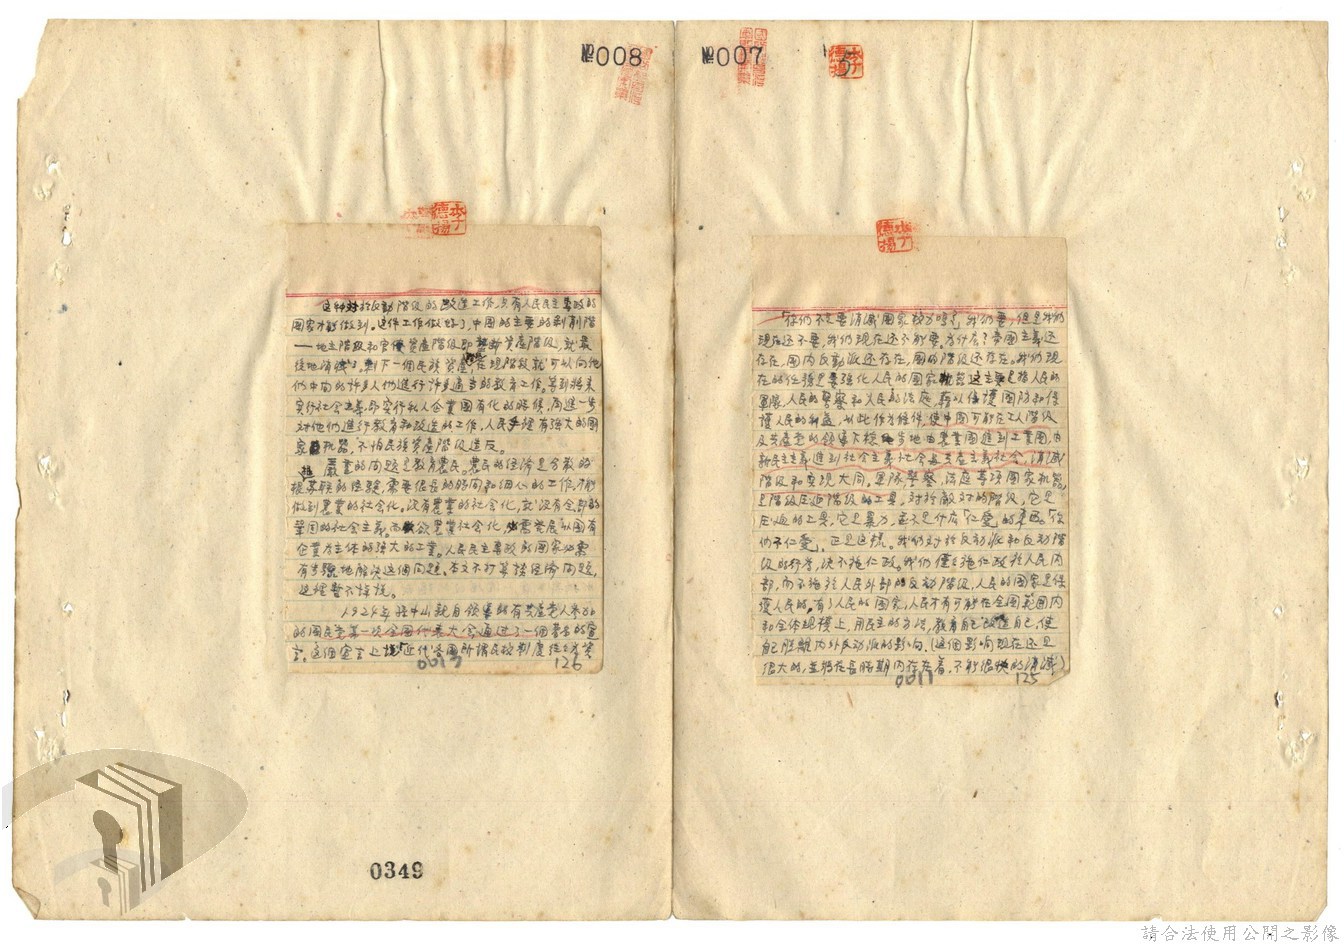 №008
№007
5
李德揚
「你們不是要消滅國家权力嗎?」我們要,但是我們
現在还不要,我們現在还不能要。为什庅?帝国主義还
存在,国内反動派还存在,国内階级还存在。我們現
在的任務是要強化人民的國家机器,这主要是指人民的
軍隊,人民的警察和人民的法庭,藉以保護國防和保
護人民的利益,以此作为條件,使中國有可能在工人階级
及共產党的領導下穩步地由農業國進到工業國,由
新民主主義進到社会主義社会与共產主義社会,消滅
階级和实現大同。軍隊,警察,法庭等項國家机器,
是階级压迫階级的工具。对於敵对的階级,它是
压迫的工具,它是暴力,並不是什庅「仁愛」的東西。「你
們不仁愛」,正是这樣。我們对於反動派和反動階
级的行为,決不施仁政。我們僅々施仁政於人民内
部,而不施於人民外部的反動階级,人民的國家是保
護人民的。有了人民的國家,人民才有可能在全國范囲内
和全体規模上,用民主的方法,教育自己改造自己,使
自己脱離内外反动派的影响,(这個影响現在还是
很大的,並將在長時期内存在着,不能很快的消滅)
0011 125
李德揚
这种对於反動階级的改造工作,只有人民民主專政的
國家才能做到。这件工作做好了,中國的主要的剥削階
——地主階级和官僚資產階级即壟断資產階级,就最
後地消滅了。剩下一個民族資產,在現階段就可以向他
們中间的許多人們進行許多適当的教育工作。等到將來
实行社会主義,即实行私人企業國有化的時候,再進一步
对他們進行教育和改造的工作,人民手裡有強大的國
家机器,不怕民族資產階级造反。
嚴重的问題是教育農民。農民的经濟是分散的
根据苏联的经驗,需要很長的時间和细心的工作,才能
做到農業的社会化。沒有農業的社会化,就沒有全部的
鞏固的社会主義。而欲農業社会化,必需發展以國有
企業为主体的強大的工業。人民民主專政的國家必需
有步驟地解決这個问題。本文不打算談经濟问題,
这裡暫不詳說。
1924年孫中山親自領導的有共產党人參加
的國民党第一次全國代表大会通过了一個著名的宣
言。这個宣言上說「近代各國所謂民权制度往々为資
0013 126
0349
請合法使用公開之影像